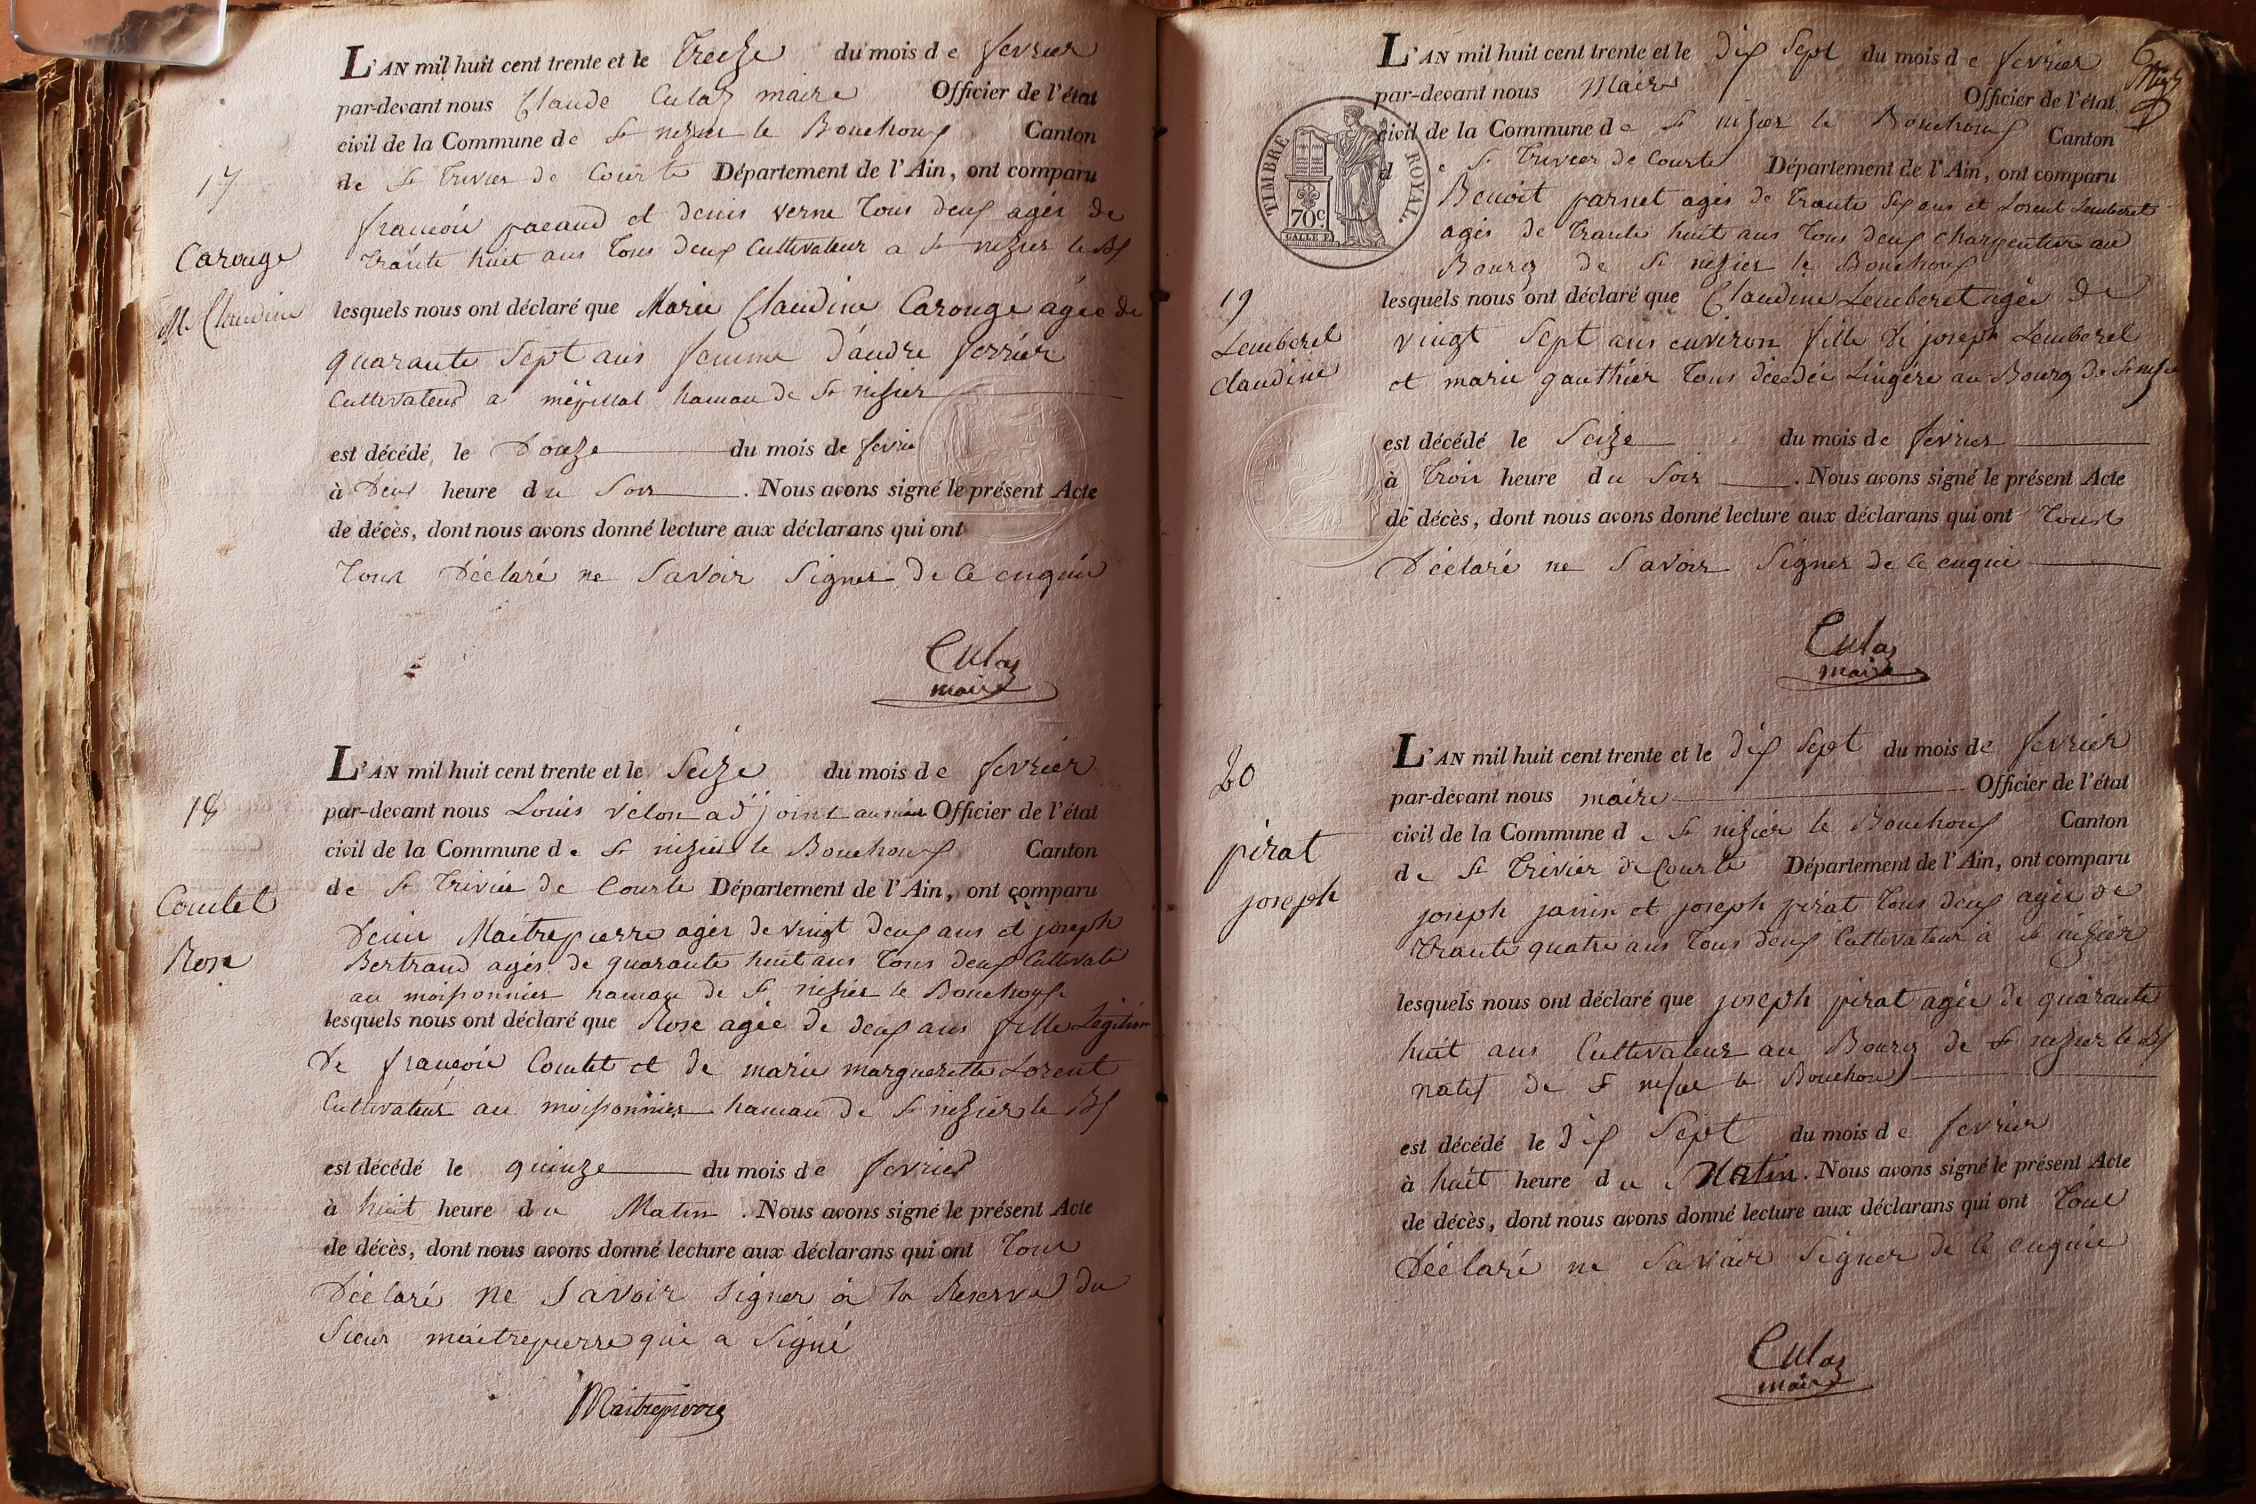 17
Carouge
M. Claudine
L'AN mil huit cent trente et le Treize du mois de fevrier
par-devant nous Claude Culaz maire Officier de l'état
civil de la Commune de St nizier le Bouchoux Canton
de St Trivier de Courte Département de l'Ain, ont comparu
françois pacaud et denis verne Tous deux agés de
trante huit ans Tous deux Cultivateur a St nizier le Bx
lesquels nous ont déclaré que Marie Claudine Carouge agée de
quarante Sept ans femme d'andre ferrier
Cultivateur a hamau de St nizier
est décédé, le Douze du mois de fevrie
à Deux heure du Soir. Nous avons signé le présent Acte
de décès, dont nous avons donné lecture aux déclarans qui ont
Tous Déclaré ne Savoir Signer De Ce enquis
Culaz
maire
18
Comtet
Rose
L'AN mil huit cent trente et le Seize du mois de fevrier
par-devant nous Louis vélon adjoint au maire Officier de l'état
civil de la Commune de St nizier le Bouchoux Canton
de St Trivier de Courte Département de l'Ain, ont comparu
Denis Maitrepierre agés de vingt deux ans et joseph
Bertrand agés de quarante huit ans Tous deux Cultivate
au moissonnier hamau de St nizier le Bouchoux
lesquels nous ont déclaré que Rose agée de deux ans fille Legitime
De françois Comtet et de marie marguerette Lorent
Cultivateur au moissonnier hamau de St nizier le Bx
est décédé le quinze du mois de fevrier
à huit heure du Matin. Nous avons signé le présent Acte
de décès, dont nous avons donné lecture aux déclarans qui ont Tous
Déclaré ne Savoir Signer à la Reserve du
Sieur maitrepierre qui a Signé
Maitrepierre
TIMBRE ROYAL.
70c
19
Lemberet
claudine
L'AN mil huit cent trente et le dix Sept du mois de fevrier
par-devant nous Maire Officier de l'état
civil de la Commune de St nizier le Bouchoux Canton
de St Trivier de Courte Département de l'Ain, ont comparu
Benoit parnet agés de trante Six ans et Lorent Lemberet
agés de trante huit ans Tous deux charpentier au
Bourg de St nizier le Bouchoux
lesquels nous ont déclaré que Claudine Lemberet agée de
vingt Sept ans environ fille de joseph Lemberet
et marie gauthier Tous décedés Lingére au Bourg de St nizier
est décédé le Seize du mois de fevrier
à Trois heure du Soir. Nous avons signé le présent Acte
de décès, dont nous avons donné lecture aux déclarans qui ont Tous
Déclaré ne Savoir Signer de Ce enquis
Culaz
maire
20
pirat
joseph
L'AN mil huit cent trente et le dix Sept du mois de fevrier
par-devant nous maire Officier de l'état
civil de la Commune de St nizier le Bouchoux Canton
de St Trivier de Courte Département de l'Ain, ont comparu
joseph janin et joseph pirat Tous deux agés de
trante quatre ans Tous deux Cultivateur à St nizier
lesquels nous ont déclaré que joseph pirat agée de quarante
huit ans Cultivateur au Bourg de St nizier le Bx
natif de St nizier le Bouchoux
est décédé le dix Sept du mois de fevrier
à huit heure du Matin. Nous avons signé le présent Acte
de décès, dont nous avons donné lecture aux déclarans qui ont Tous
Déclaré ne Savoir Signer de Ce enquis
Culaz
maire